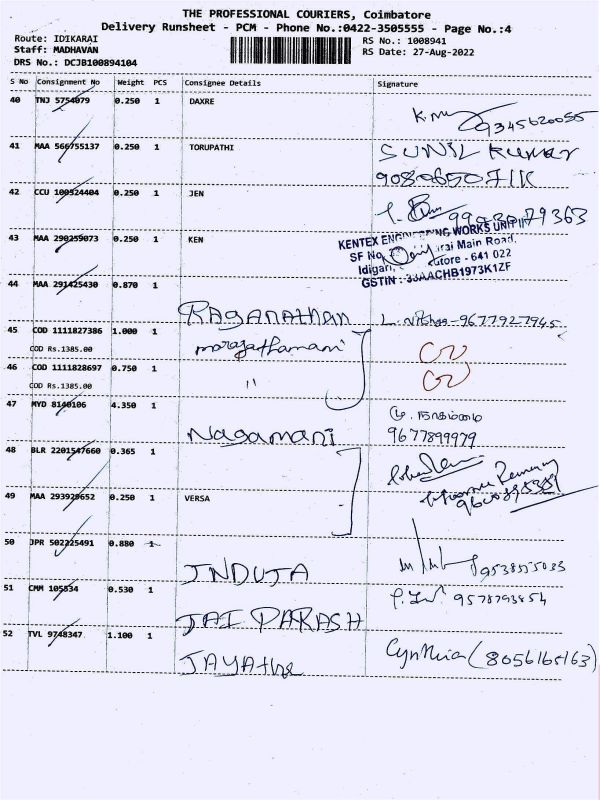 THE PROFESSIONAL COURIERS, Coimbatore
Delivery Runsheet - PCM - Phone No.:0422-3505555 - Page No.:4
Route: IDIKARAI
Staff: MADHAVAN
DRS No.: DCJB100894104
RS No.: 1008941
RS Date: 27-Aug-2022
S No Consignment No Weight PCS Consignee Details Signature
40 TNJ 5754079 0.250 1 DAXRE
9345620055
41 MAA 566755137 0.250 1 TORUPATHI SUNIL KUMAR
42 CCU 100524404 0.250 1 JEN
43 MAA 290259073 0.250 1 KEN
KENTEX ENGINEERING WORKS UNIT II
Main Road,
641 022
GSTIN : 33AACHB1973K1ZF
44 MAA 291425430 0.870 1
RAGANATHAN 9677927945
45 COD 1111827386 1.000 1 maragathamani
COD Rs.1385.00
46 COD 1111828697 0.750 1 "
COD Rs.1385.00
47 MYD 8140106 4.350 1
Nagamani 9677899979
48 BLR 2201547660 0.365 1
49 MAA 293929652 0.250 1 VERSA
50 JPR 502225491 0.880 1
INDUJA 9538555033
51 CMM 105834 0.530 1
JAI PARASH 9578793854
52 TVL 9748347 1.100 1
Cynthia (8056165163)